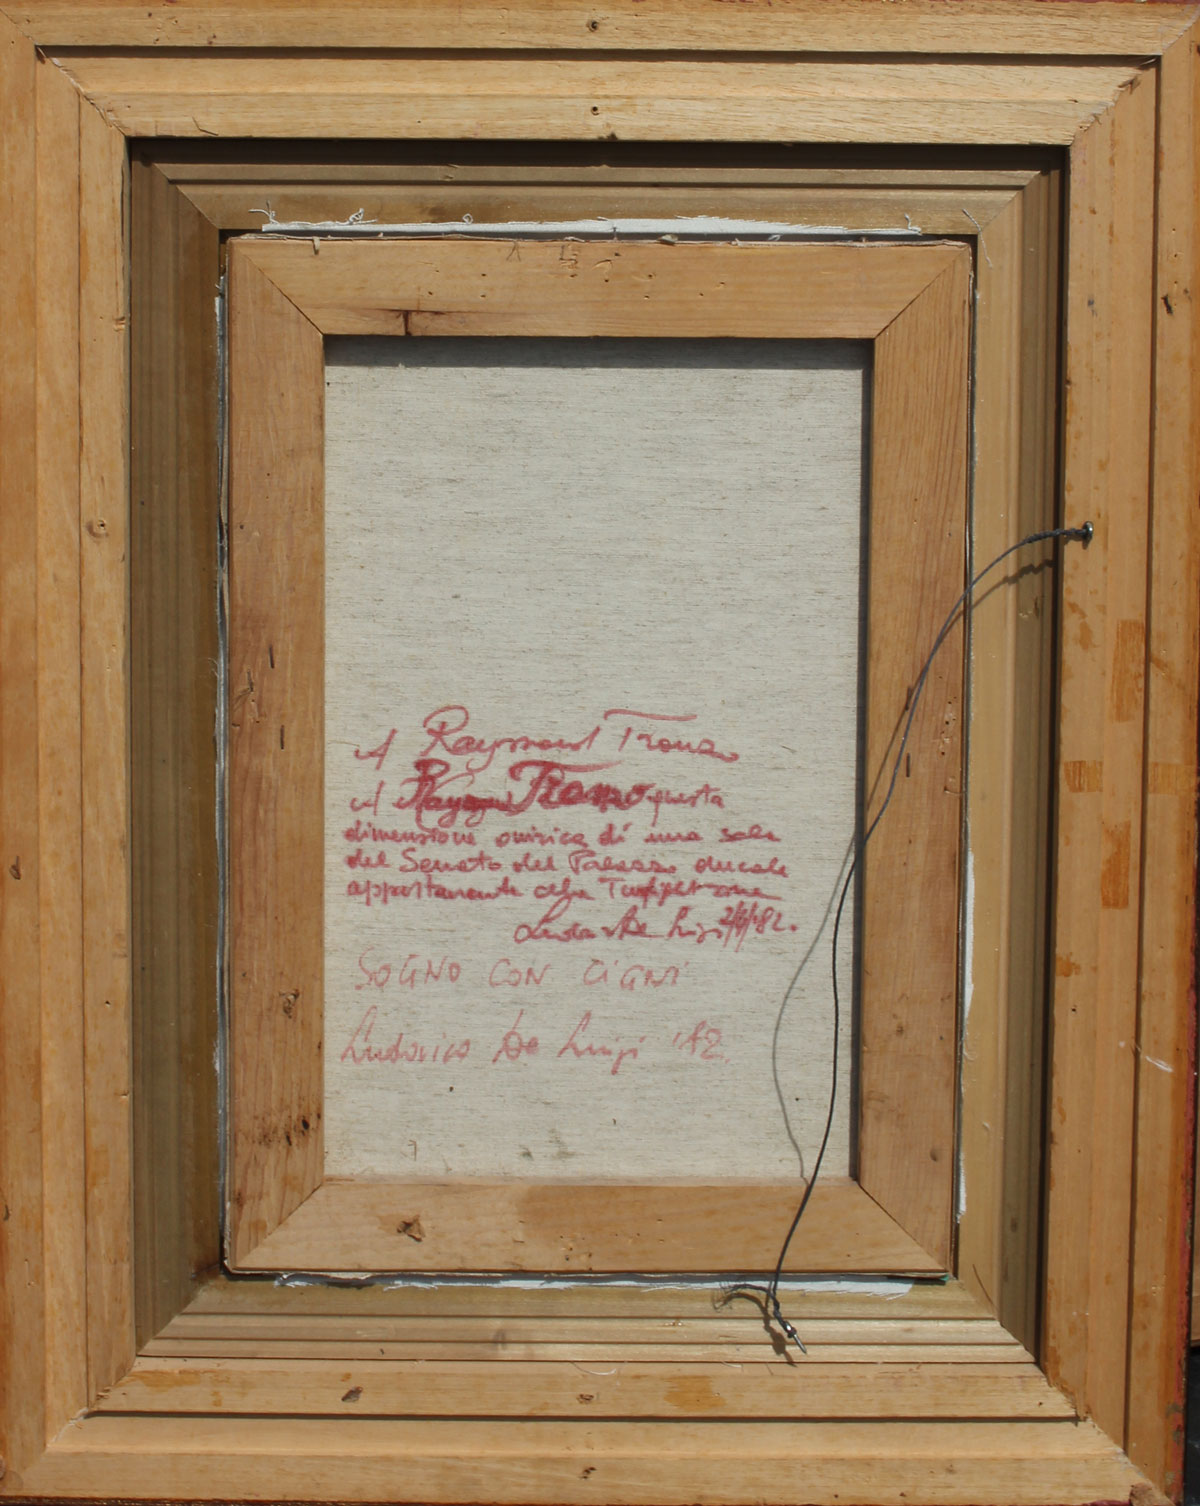 A Raymond Trona
A Raymond Trona questa
dimensione onirica di una sala
del Senato del Palazzo ducale
appartenente alla
Ludovico De Luigi 2/6/'82.
SOGNO CON CIGNI
Ludovico De Luigi '82.